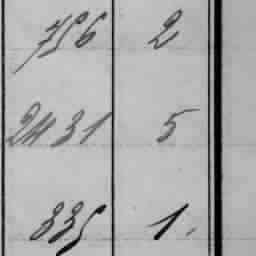 756 2
2431 5
335 1.